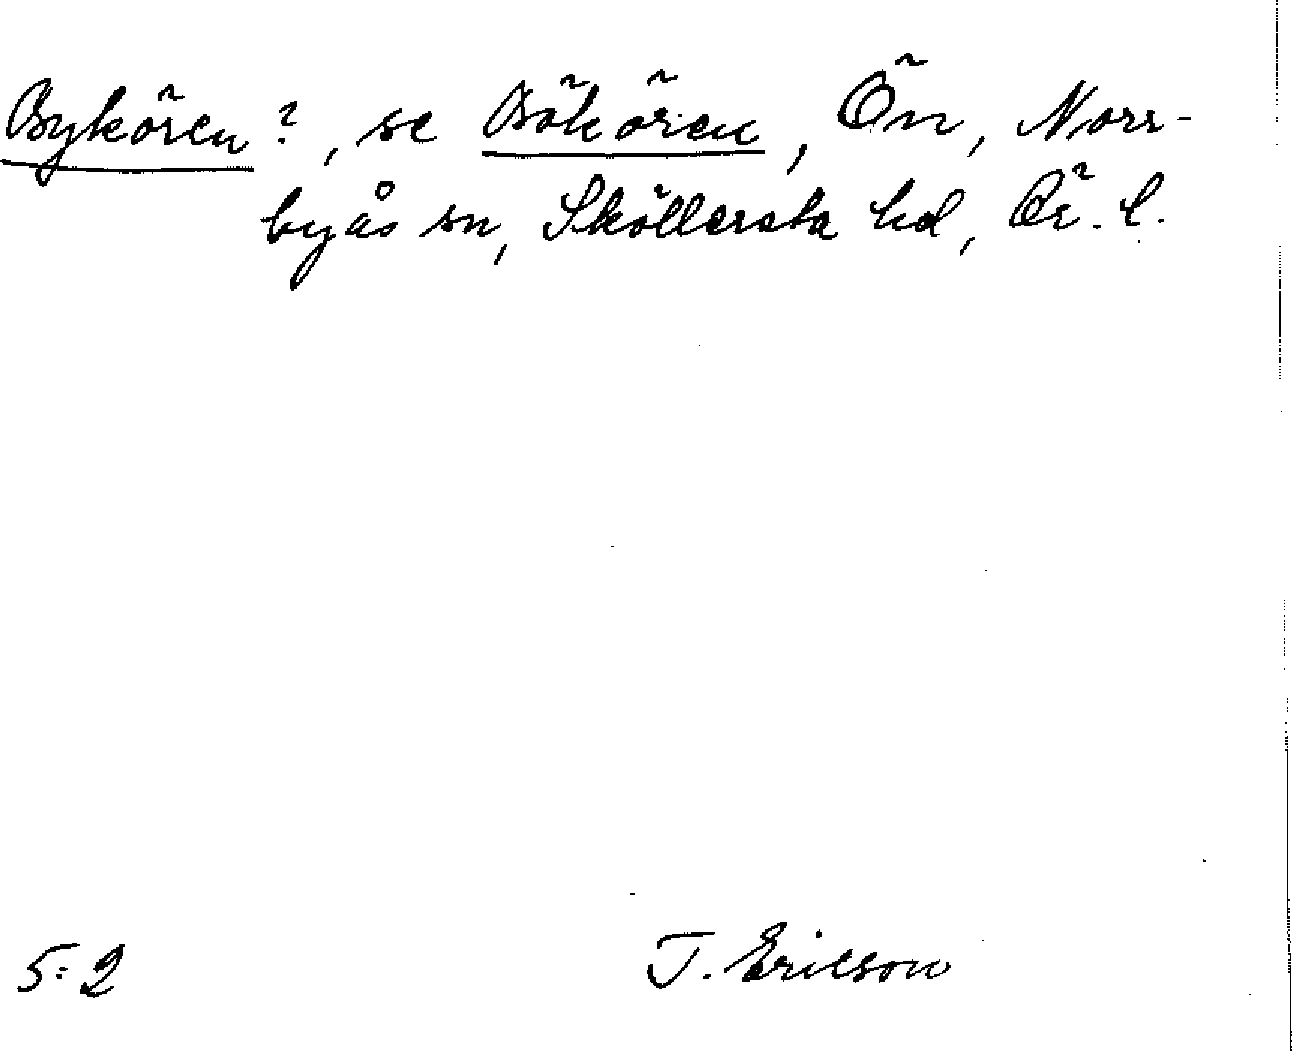 Bykören?, se Bökören, Ön, Norr-
byås sn, Sköllersta hd, Ör. l.
5:2
T. Ericson